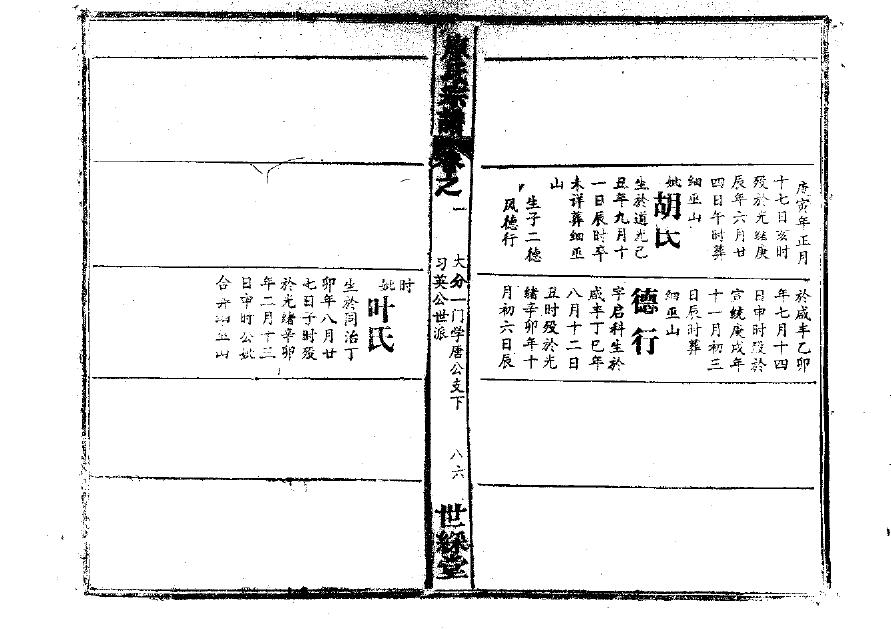 庚寅年正月
十七日亥时
殁於光绪庚
辰年六月廿
四日午时葬
细巫山
妣胡氏
生於道光己
丑年九月十
一日辰时卒
未详葬细巫
山
生子二德
风德行
於咸丰乙卯
年七月十四
日申时殁於
宣统庚戌年
十一月初三
日辰时葬
细巫山
德行
字启科生於
咸丰丁巳年
八月十二日
丑时殁於光
绪辛卯年十
月初六日辰
氏宗譜卷之一
大分一门学唐公支下
习英公世派
八六
世綵堂
时
妣叶氏
生於同治丁
卯年八月廿
七日子时殁
於光绪辛卯
年二月十三
日申时公妣
合葬细巫山